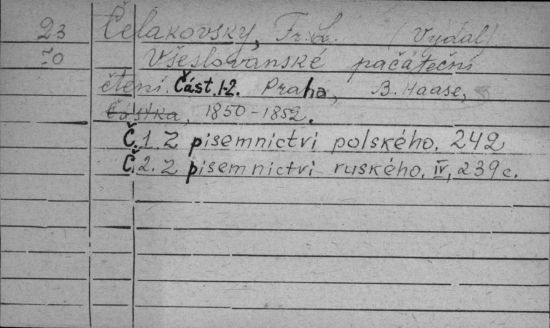 23 Čelakovsky, Fr. L. (Vydal)
Všeslovanské počáteční
čtení. Část. 1-2. Praha, B. Haase,
1850-1852.
Č. 1. Z pisemnictvi polského. 242
Č. 2. Z pisemnictvi ruského. IV, 239 c.